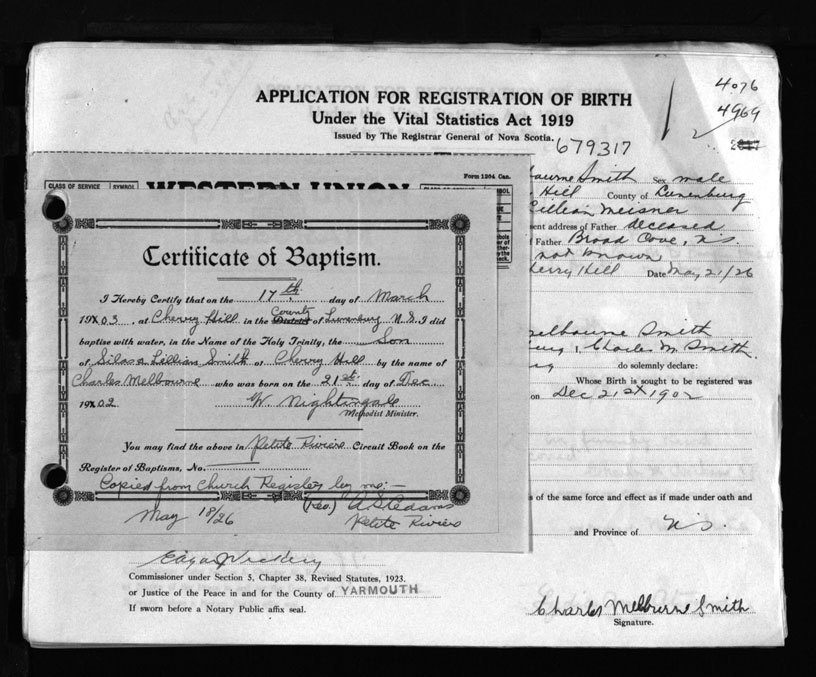 4076
4969
APPLICATION FOR REGISTRATION OF BIRTH
Under the Vital Statistics Act 1919
Issued by The Registrar General of Nova Scotia.
679317
Form 1204 Can.
CLASS OF SERVICE SYMBOL
WESTERN UNION
Certificate of Baptism.
I Hereby Certify that on the 17th day of March
1903, at Cherry Hill in the County District of Lunenburg N.S. I did
baptise with water, in the Name of the Holy Trinity, the Son
of Silas & Lillian Smith of Cherry Hill by the name of
Charles Melbourne who was born on the 21st day of Dec
1902 W. Nightingale
Methodist Minister.
You may find the above in Petite Riviere Circuit Book on the
Register of Baptisms, No.
Copied from Church Register by me:-
May 18/26 (Rev.)
Petite Riviere
bourne Smith Sex male
Hill County of Lunenburg
Lillian Meisner
sent address of Father deceased
Father Broad Cove, N.S.
not known
herry Hill Date May 21/26
elbourne Smith
Charles M. Smith.
do solemnly declare:
Whose Birth is sought to be registered was
on Dec 21st 1902
s of the same force and effect as if made under oath and
and Province of N.S.
Commissioner under Section 5, Chapter 38, Revised Statutes, 1923.
or Justice of the Peace in and for the County of YARMOUTH
If sworn before a Notary Public affix seal.
Charles Melburne Smith
Signature.